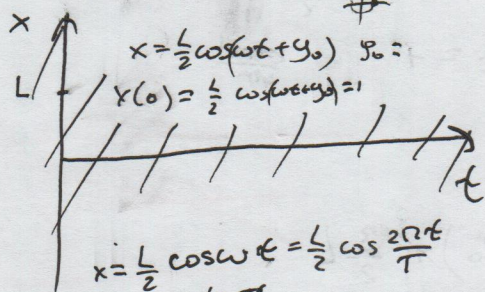 x
x = L/2 cos(ωt + φ₀) φ₀ =
L x(0) = L/2 cos(ωt+φ₀) = 1
t
x = L/2 cos ωt = L/2 cos 2πt/T